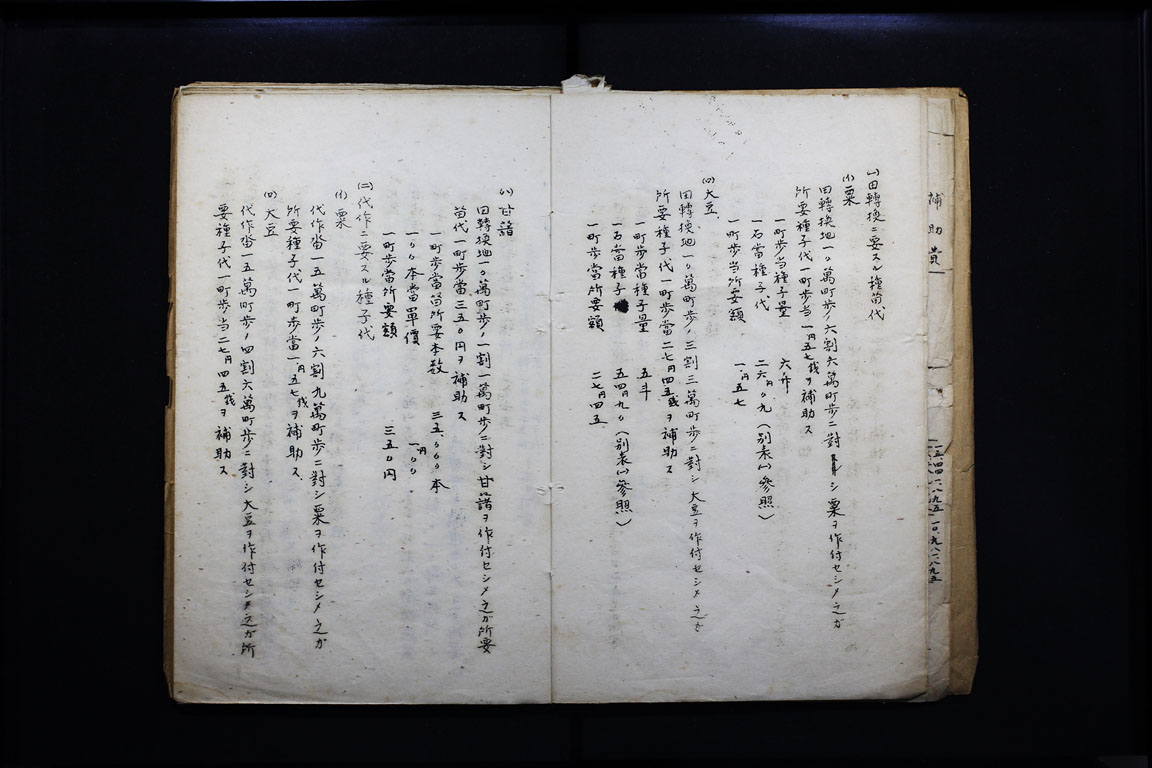 補助費
一五四四一八九五
一〇九八一八九五
(一)田轉換ニ要スル種苗代
(イ)粟
田轉換地一〇萬町歩ノ六割六萬町歩ニ對シ粟ヲ作付セシメ之ガ
所要種子代一町歩当一円五七銭ヲ補助ス
一町歩当種子量 六升
一石當種子代 二六円〇九(別表(一)參照)
一町歩当所要額 一円五七
(ロ)大豆
田轉換地一〇萬町歩ノ三割三萬町歩ニ對シ大豆ヲ作付セシメ之ガ
所要種子代一町歩當二七円四五銭ヲ補助ス
一町歩當種子量 五斗
一石當種子 五四円九〇(別表(一)參照)
一町歩当所要額 二七円四五
(ハ)甘藷
田轉換地一〇萬町歩ノ一割一萬町歩ニ對シ甘藷ヲ作付セシメ之ガ所要
苗代一町歩當三五〇円ヲ補助ス
一町歩當苗所要本数 三五、〇〇〇本
一〇〇本當單價 一円〇〇
一町歩當所要額 三五〇円
(二)代作ニ要スル種子代
(イ)粟
代作畓一五萬町歩ノ六割九萬町歩ニ對シ粟ヲ作付セシメ之ガ
所要種子代一町歩當一円五七銭ヲ補助ス
(ロ)大豆
代作畓一五萬町歩ノ四割六萬町歩ニ對シ大豆ヲ作付セシメ之ガ所
要種子代一町歩当二七円四五銭ヲ補助ス